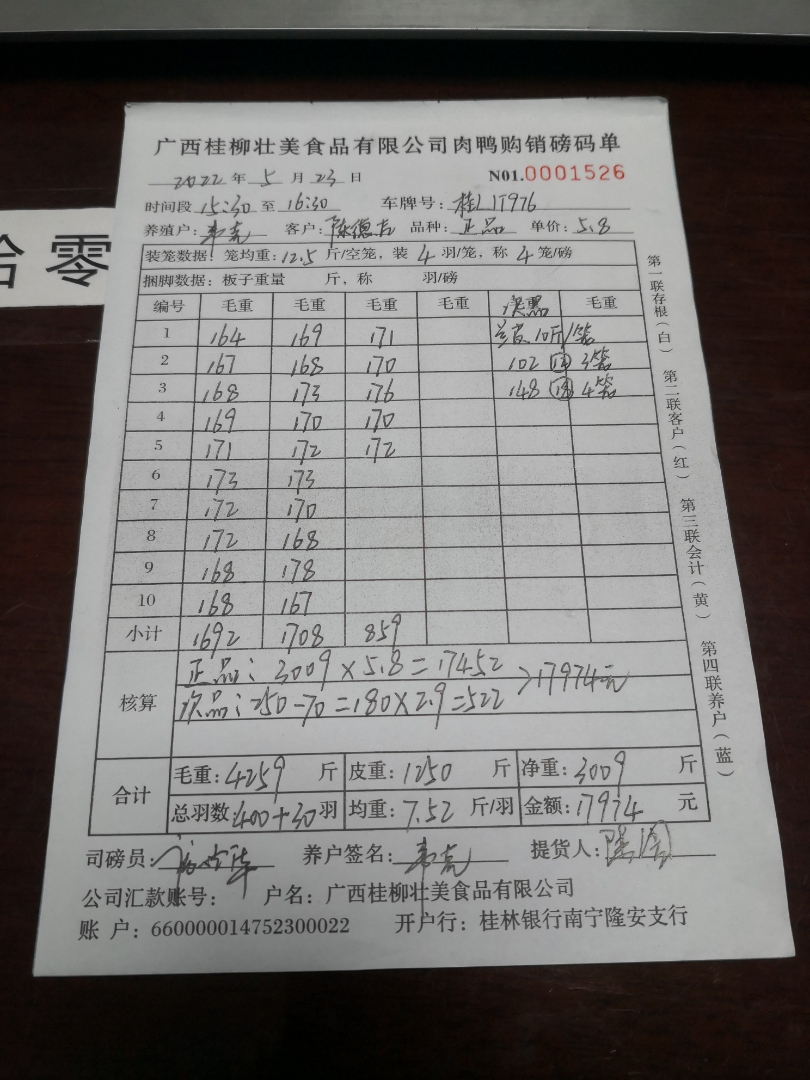 广西桂柳壮美食品有限公司肉鸭购销磅码单
2022 年 5 月 23 日 N01.0001526
时间段 15:30 至 16:30 车牌号: 桂
养殖户: 韦亮 客户: 陈德 品种: 正品 单价: 5.8
装笼数据: 笼均重: 12.5 斤/空笼, 装 4 羽/笼, 称 4 笼/磅
捆脚数据: 板子重量 斤, 称 羽/磅
编号 毛重 毛重 毛重 毛重 次品 毛重
1 164 169 171 10斤/笼
2 167 168 170 102 3笼
3 168 173 176 148 4笼
4 169 170 170
5 171 172 172
6 173 173
7 172 170
8 172 168
9 168 178
10 168 167
小计 1692 1708 859
核算
正品: 3009×5.8=17452
次品:250-70=180×2.9=522 >17974元
合计
毛重: 4259 斤 皮重: 1250 斤 净重: 3009 斤
总羽数: 400+30 羽 均重: 7.52 斤/羽 金额: 17974 元
司磅员: 养户签名: 韦亮 提货人:
公司汇款账号: 户名: 广西桂柳壮美食品有限公司
账 户: 660000014752300022 开户行: 桂林银行南宁隆安支行
第一联存根(白) 第二联客户(红) 第三联会计(黄) 第四联养户(蓝)
零